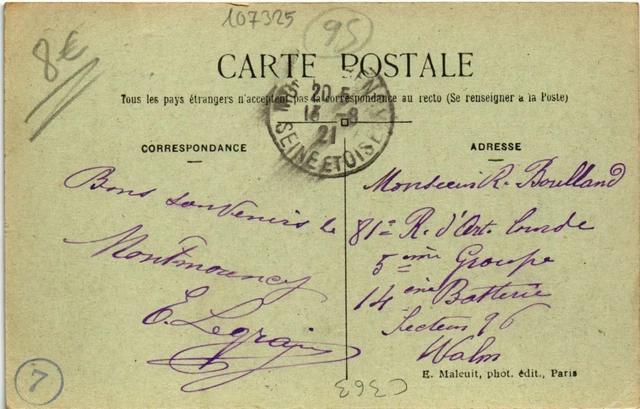 107325
95
8€
CARTE POSTALE
Tous les pays étrangers n'acceptent pas la correspondance au recto (Se renseigner à la Poste)
20
13 - 8
21
SEINE ET OISE
CORRESPONDANCE
ADRESSE
Bons souvenirs de
Montmorency
E. Legrain
Monsieur R. Boulland
81e R. d'Art. Lourde
5ème Groupe
14ème Batterie
Secteur 96
Walm
E. Maleuit, phot. édit., Paris
7
C363